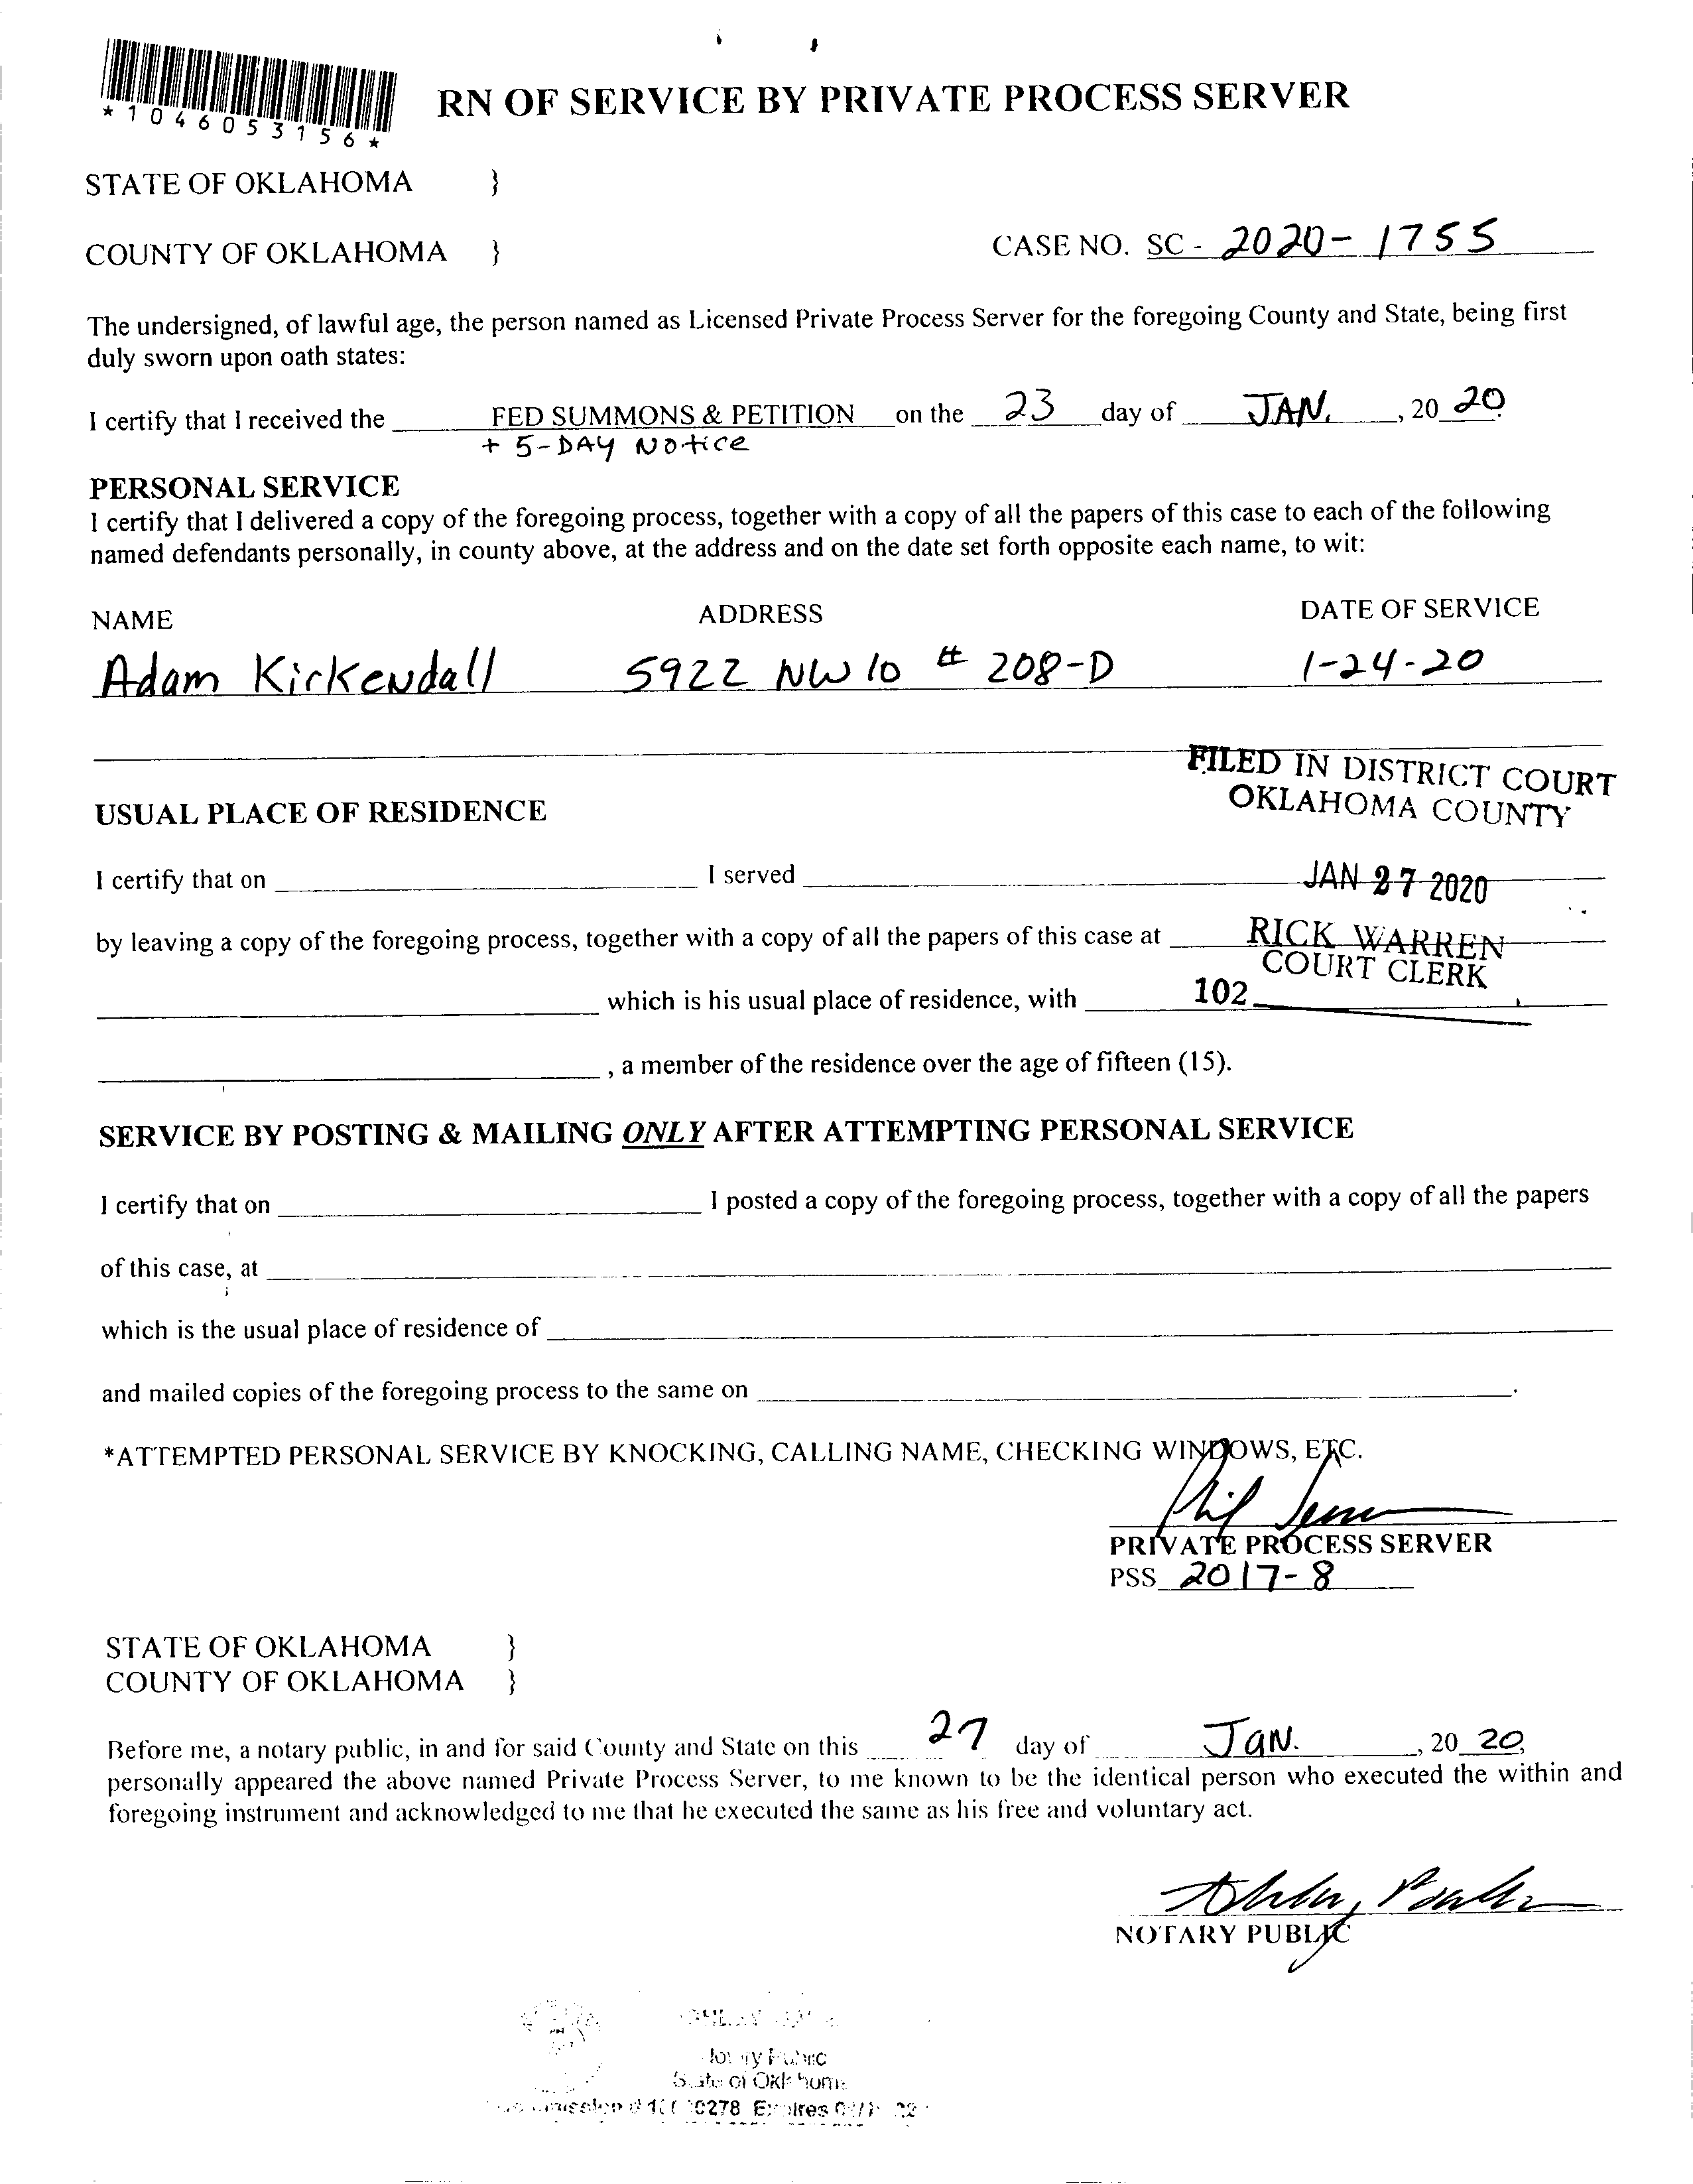 *1046053156*
RN OF SERVICE BY PRIVATE PROCESS SERVER
STATE OF OKLAHOMA }
COUNTY OF OKLAHOMA } CASE NO. SC - 2020-1755
The undersigned, of lawful age, the person named as Licensed Private Process Server for the foregoing County and State, being first
duly sworn upon oath states:
I certify that I received the FED SUMMONS & PETITION on the 23 day of JAN. , 20 20
+ 5-DAY Notice
PERSONAL SERVICE
I certify that I delivered a copy of the foregoing process, together with a copy of all the papers of this case to each of the following
named defendants personally, in county above, at the address and on the date set forth opposite each name, to wit:
NAME ADDRESS DATE OF SERVICE
Adam Kirkendall 5922 NW 10 # 208-D 1-24-20
FILED IN DISTRICT COURT
OKLAHOMA COUNTY
USUAL PLACE OF RESIDENCE
I certify that on I served JAN 27 2020
by leaving a copy of the foregoing process, together with a copy of all the papers of this case at RICK WARREN
COURT CLERK
which is his usual place of residence, with 102
, a member of the residence over the age of fifteen (15).
SERVICE BY POSTING & MAILING ONLY AFTER ATTEMPTING PERSONAL SERVICE
I certify that on I posted a copy of the foregoing process, together with a copy of all the papers
of this case, at
which is the usual place of residence of
and mailed copies of the foregoing process to the same on .
*ATTEMPTED PERSONAL SERVICE BY KNOCKING, CALLING NAME, CHECKING WINDOWS, ETC.
PRIVATE PROCESS SERVER
PSS 2017-8
STATE OF OKLAHOMA }
COUNTY OF OKLAHOMA }
Before me, a notary public, in and for said County and State on this 27 day of JAN. , 20 20,
personally appeared the above named Private Process Server, to me known to be the identical person who executed the within and
foregoing instrument and acknowledged to me that he executed the same as his free and voluntary act.
NOTARY PUBLIC
Public
State of
Expires